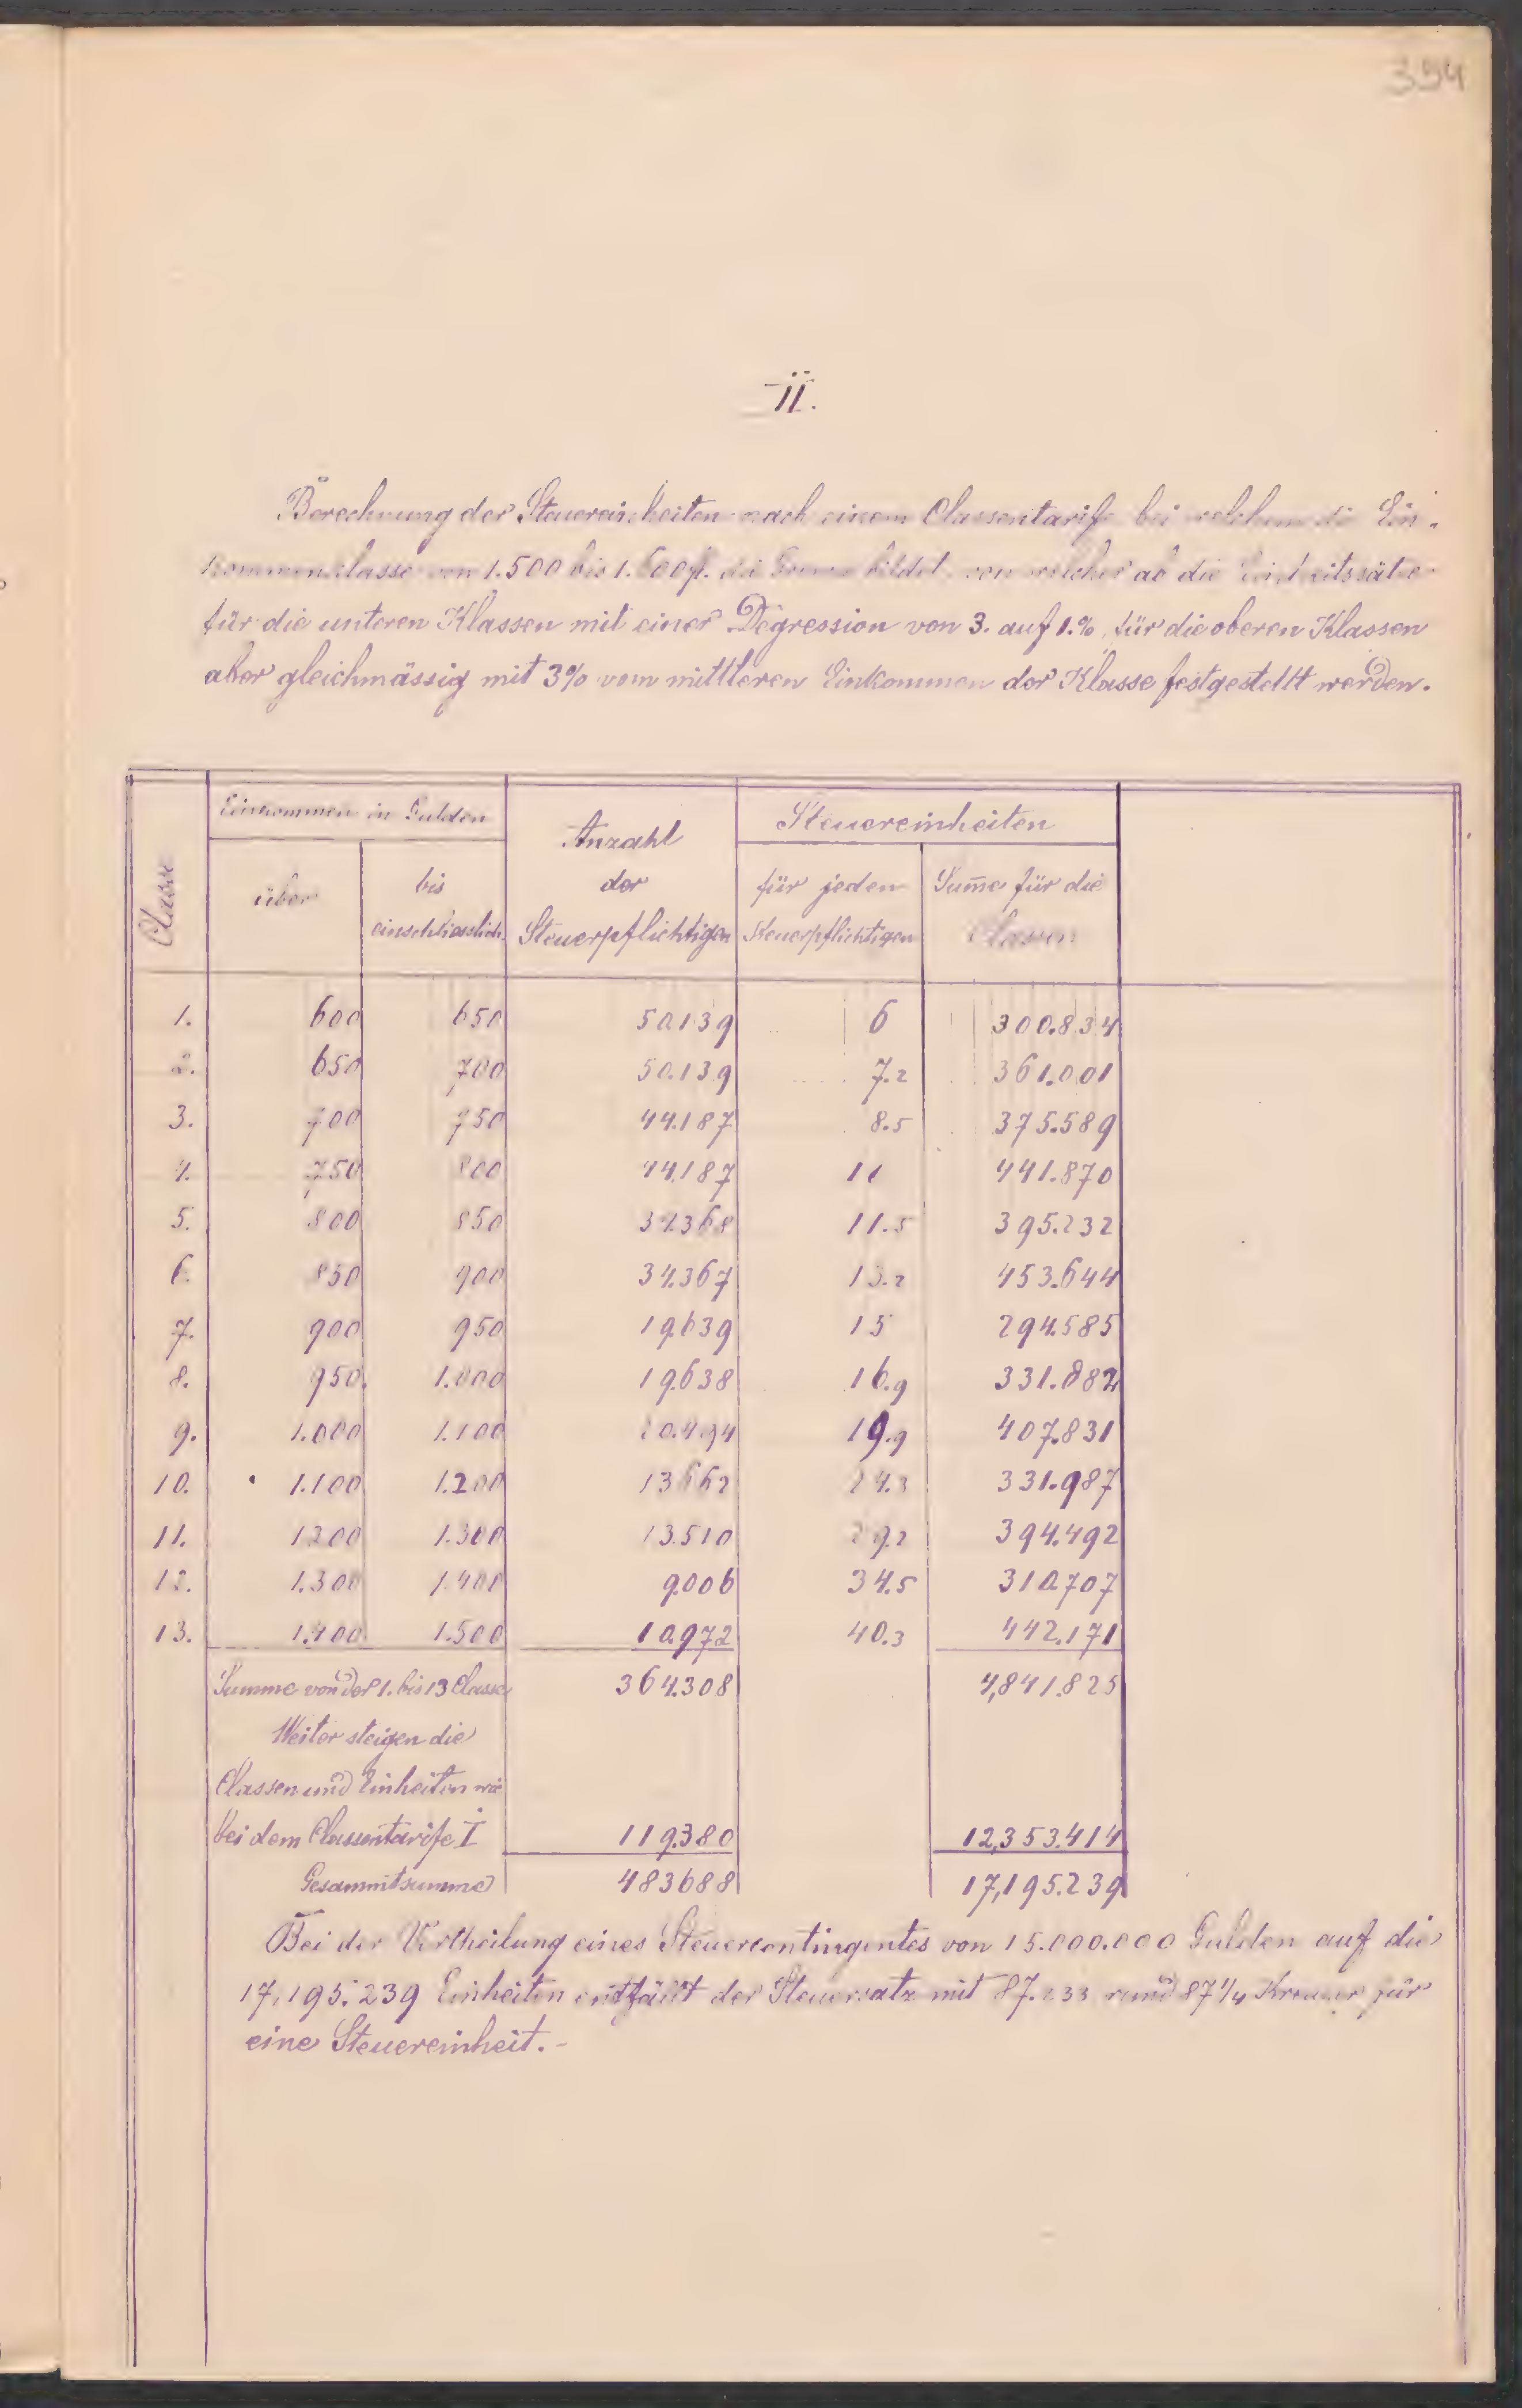 394
II.
Berechnung der Steuereinheiten nach einem Classentarife bei welchem die Ein-
kommensclasse von 1.500 bis 1.600 fl. die Grenze bildet, von welcher ab die Einheitssätze
für die unteren Klassen mit einer Degression von 3. auf 1.%, für die oberen Klassen
aber gleichmässig mit 3% vom mittleren Einkommen der Klasse festgestellt werden.
Classe Einkommen in Gulden Anzahl der Steuerpflichtigen Steuereinheiten
über bis einschliesslich für jeden Steuerpflichtigen Sume für die Classen
1. 600 650 50.139 6 300.834
2. 650 700 50.139 7.2 361.001
3. 700 750 44.187 8.5 375.589
4. 750 800 44.187 441.870
5. 800 850 34.368 11.5 395.232
6. 850 900 34.367 13.2 453.644
7. 900 950 19.639 15 294.585
8. 950. 1.000 19.638 16.9 331.882
9. 1.000 1.100 20.494 19.9 407.831
10. 1.100 1.200 13662 24.3 331.987
11. 1200 1.300 13.510 29.2 394.492
12. 1.300 1.400 9.006 34.5 310.707
13. 1.400 1.500 10.972 40.3 442.171
Summe von der 1. bis 13 Classe 364.308 4,841.825
Weiter steigen die
Classen und Einheiten wie
bei dem Classentarife I 119.380 12,353.414
Gesammtsumme 483688 17,195.239
Bei der Vertheilung eines Steuercontingentes von 15.000.000 Gulden auf die
17,195.239 Einheiten entfällt der Steuersatz mit 87.233 rund 87 1/4 Kreuzer für
eine Steuereinheit.-